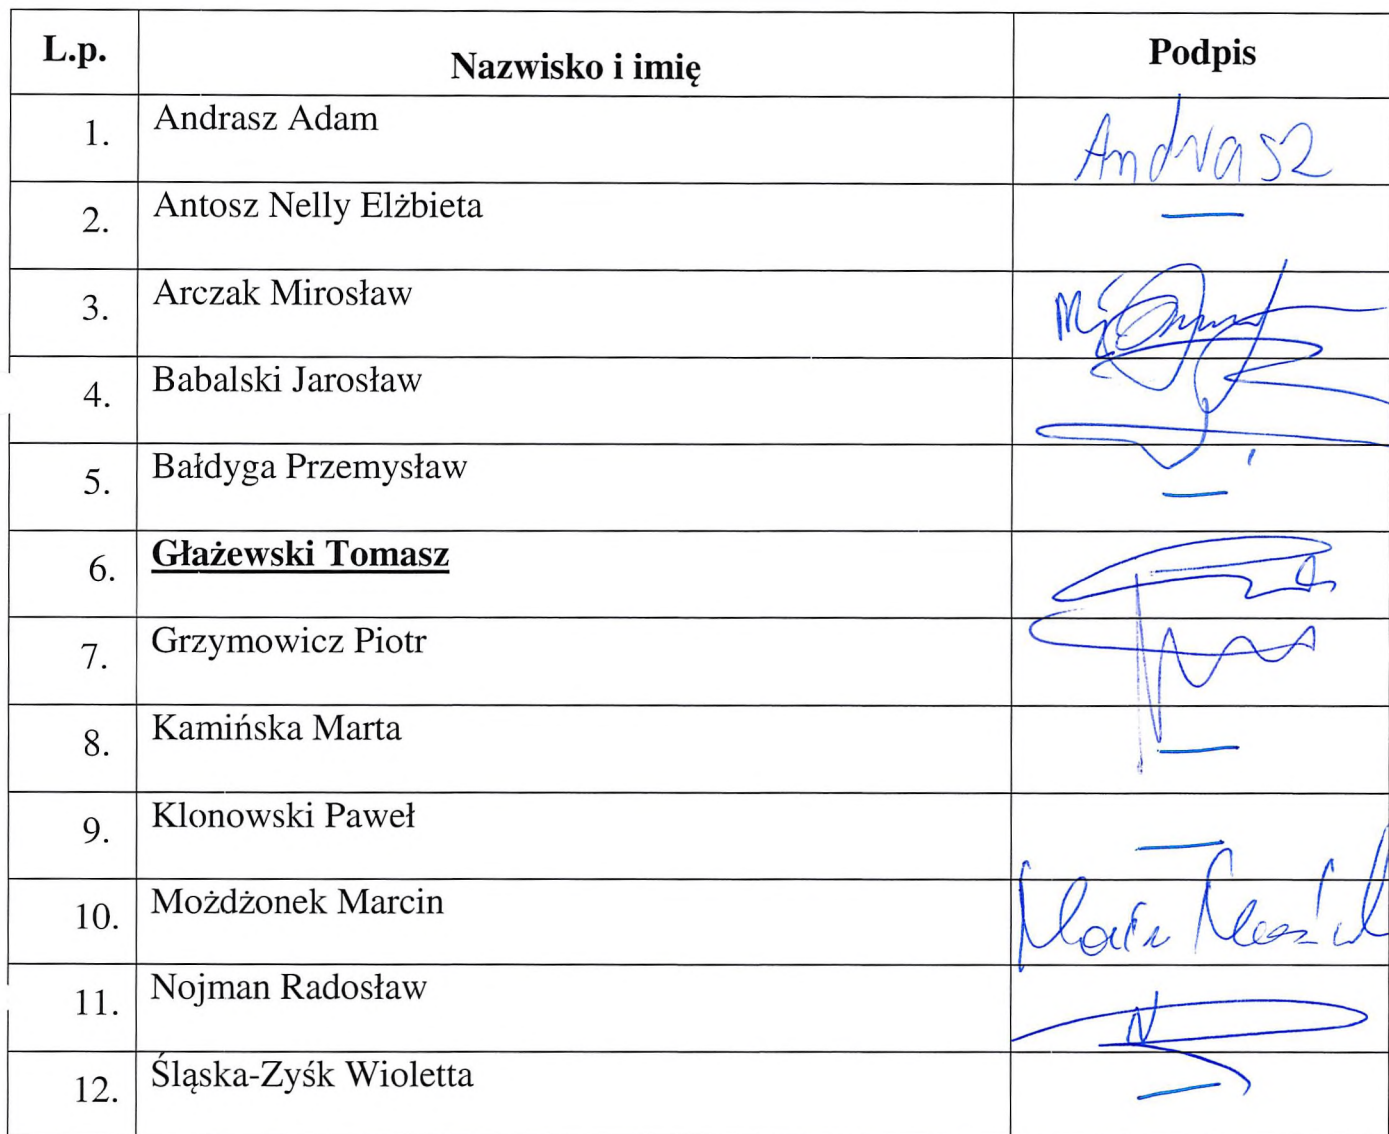 L.p. Nazwisko i imię Podpis
1. Andrasz Adam Andrasz
2. Antosz Nelly Elżbieta —
3. Arczak Mirosław
4. Babalski Jarosław
5. Bałdyga Przemysław —
6. Głażewski Tomasz
7. Grzymowicz Piotr
8. Kamińska Marta —
9. Klonowski Paweł —
10. Możdżonek Marcin
11. Nojman Radosław
12. Śląska-Zyśk Wioletta —